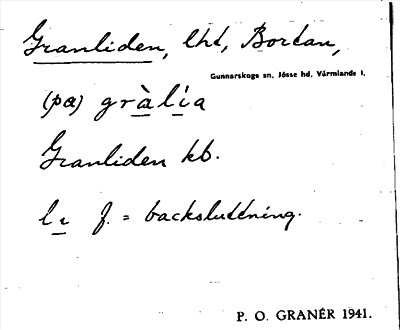 Granliden, lht, Bortan,
Gunnarskogs sn, Jösse hd, Värmlands l.
(pα) gràlı̀a
Granliden kb.
lı f. = backsluttning.
P. O. GRANÉR 1941.